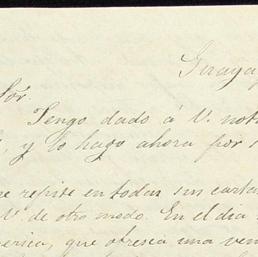 Guaya
Sor.
Tengo dado á V. noti
y lo hago ahora por
e repite en todas sus carta
V. de otro modo. En el dia
erica, que ofresca una ven